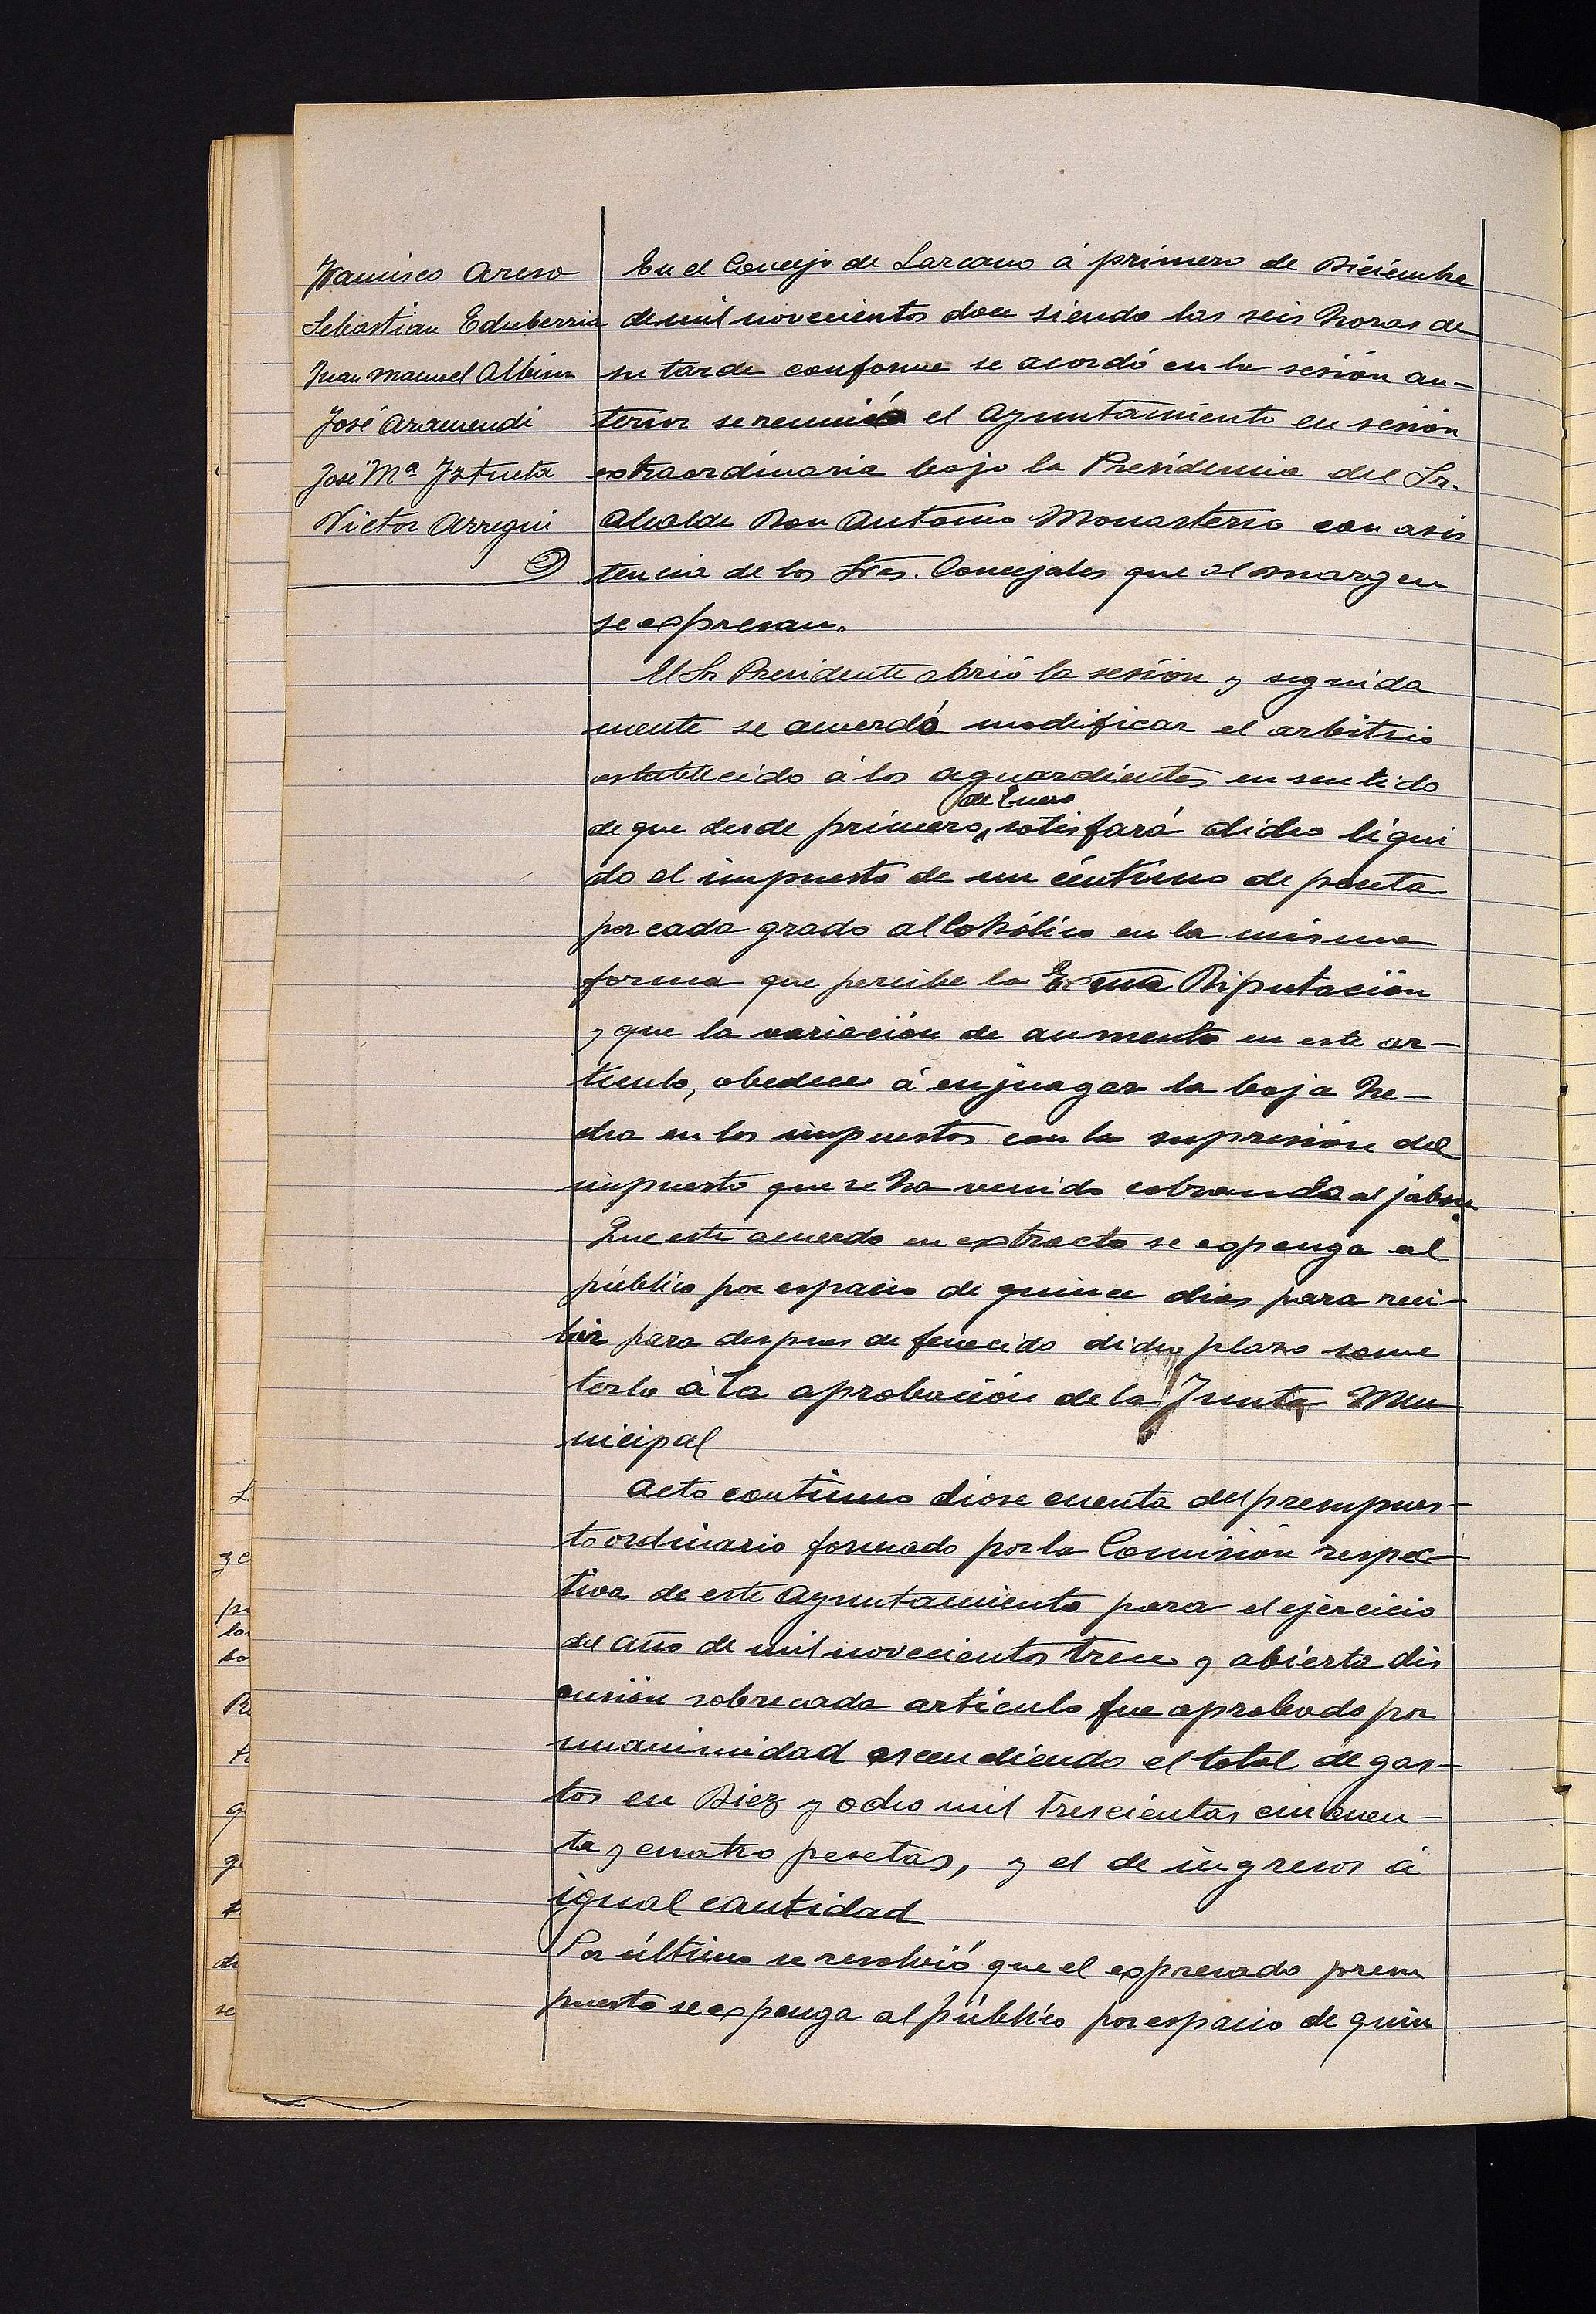 Francisco Areso
Sebastian Echeberria
Juan Manuel Albisu
José Aramendi
José Mª Iztueta
Victor Arregui
En el Concejo de Lazcano á primero de Diciembre
de mil novecientos doce siendo las seis horas de
su tarde conforme se acordó en la sesión an-
terior se reunió el Ayuntamiento en sesión
extraordinaria bajo la Presidencia del Sr.
Alcalde Don Antonio Monasterio con asis
tencia de los Sres. Concejales que al margen
se expresan.
El Sr Presidente abrió la sesión y seguida
mente se acuerdó modificar el arbitrio
establecido á los aguardientes en sentido
de Enero
de que desde primero, satisfará dicho liqui
do el impuesto de un céntimo de peseta
por cada grado allcohólico en la misma
forma que percibe la Exma Diputación
y que la variación de aumento en este ar-
tículo, obedece á enjuagar la baja he-
cha en los impuestos con la supresión del
impuesto que se ha venido cobrando al jabon.
Que este acuerdo en extracto se exponga al
público por espacio de quince dias para reci-
bir para despues de fenecido dicho plazo some
terlo á la aprobación de la Junta Mu
nicipal
Acto continuo diose cuenta del presupues-
to ordinario formado por la Comisión respec-
tiva de este Ayuntamiento para el ejercicio
del año de mil novecientos trece y abierta dis
cusión sobre cada artículo fue aprobado por
unanimidad ascendiendo el total de gas-
tos en Diez y ocho mil trescientas cincuen-
ta y cuatro pesetas, y el de ingresos á
igual cantidad
Por último se resolvió que el expresado presu
puesto se exponga al público por espacio de quin